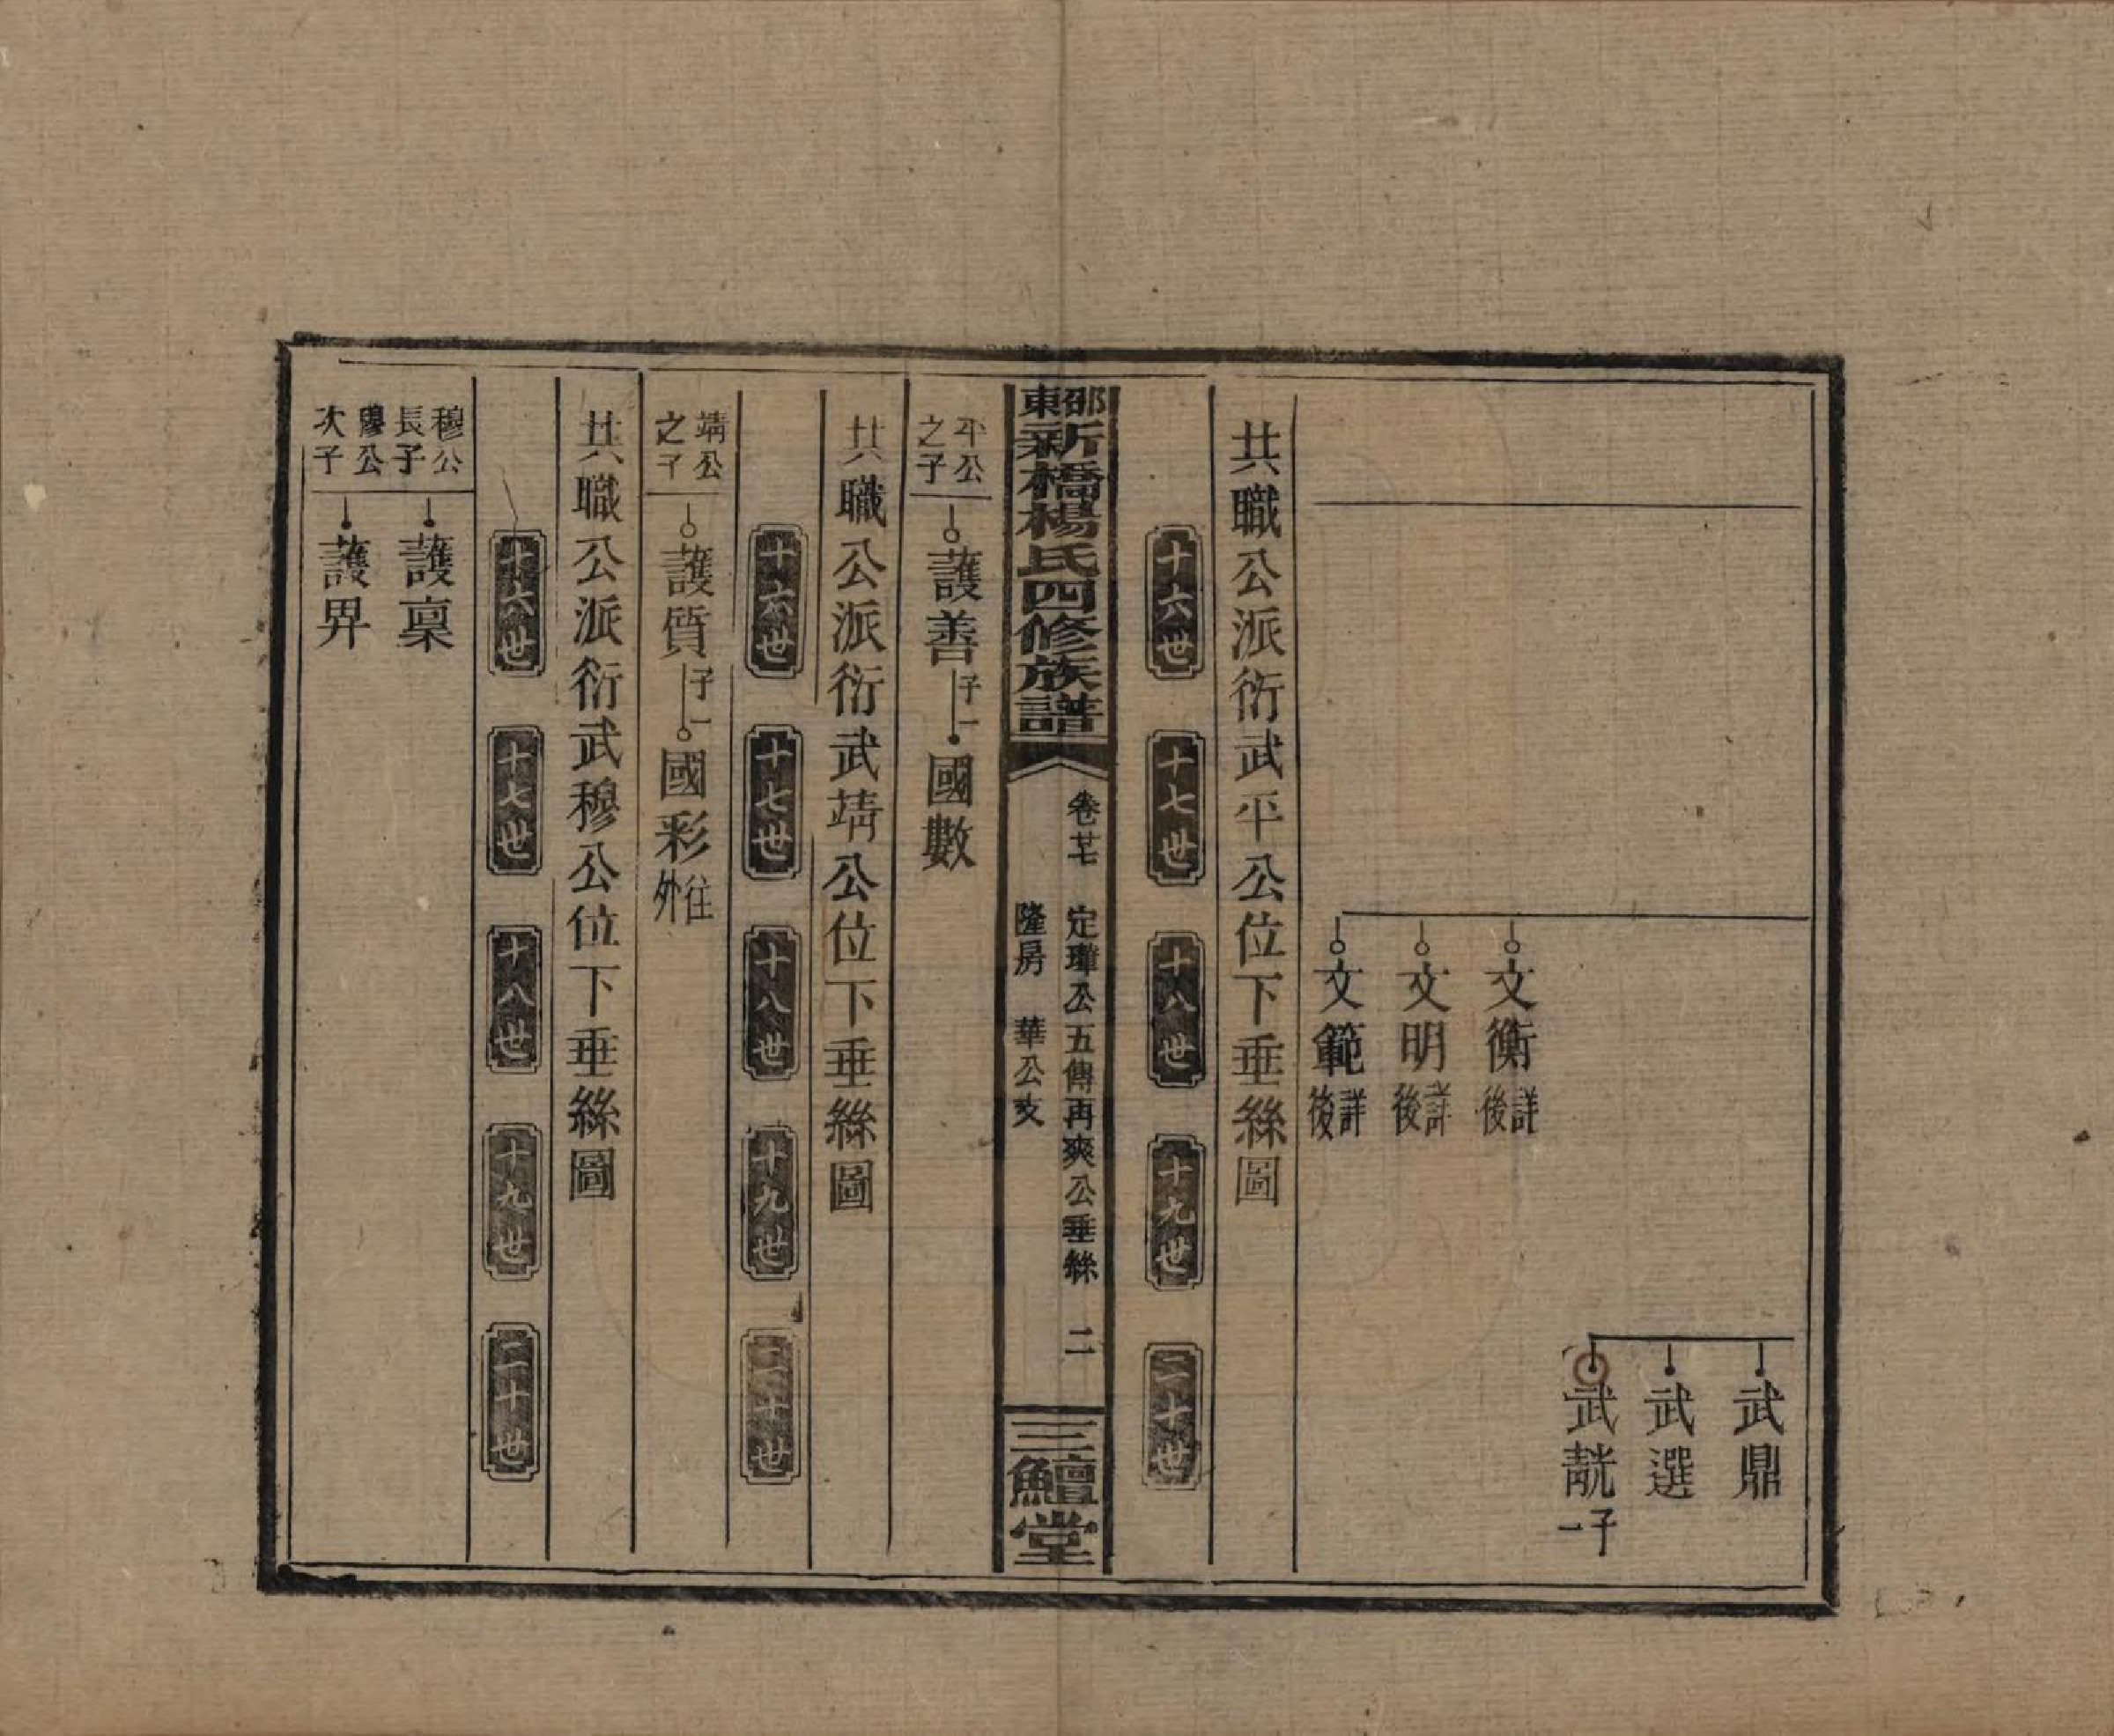 武鼎
武選
武靗 子一
文衡 詳後
文明 詳後
文範 詳後
共職公派衍武平公位下垂絲圖
十六世 十七世 十八世 十九世 二十世
邵東新橋楊氏四修族譜 卷廿七 定瓘公五傳再爽公垂絲 二
隆房 華公支
三鱣堂
平公之子 護善 子一 國數
共職公派衍武靖公位下垂絲圖
十六世 十七世 十八世 十九世 二十世
靖公之子 護質 子一 國彩 往外
共職公派衍武穆公位下垂絲圖
十六世 十七世 十八世 十九世 二十世
穆公長子 護稟
穆公次子 護畀